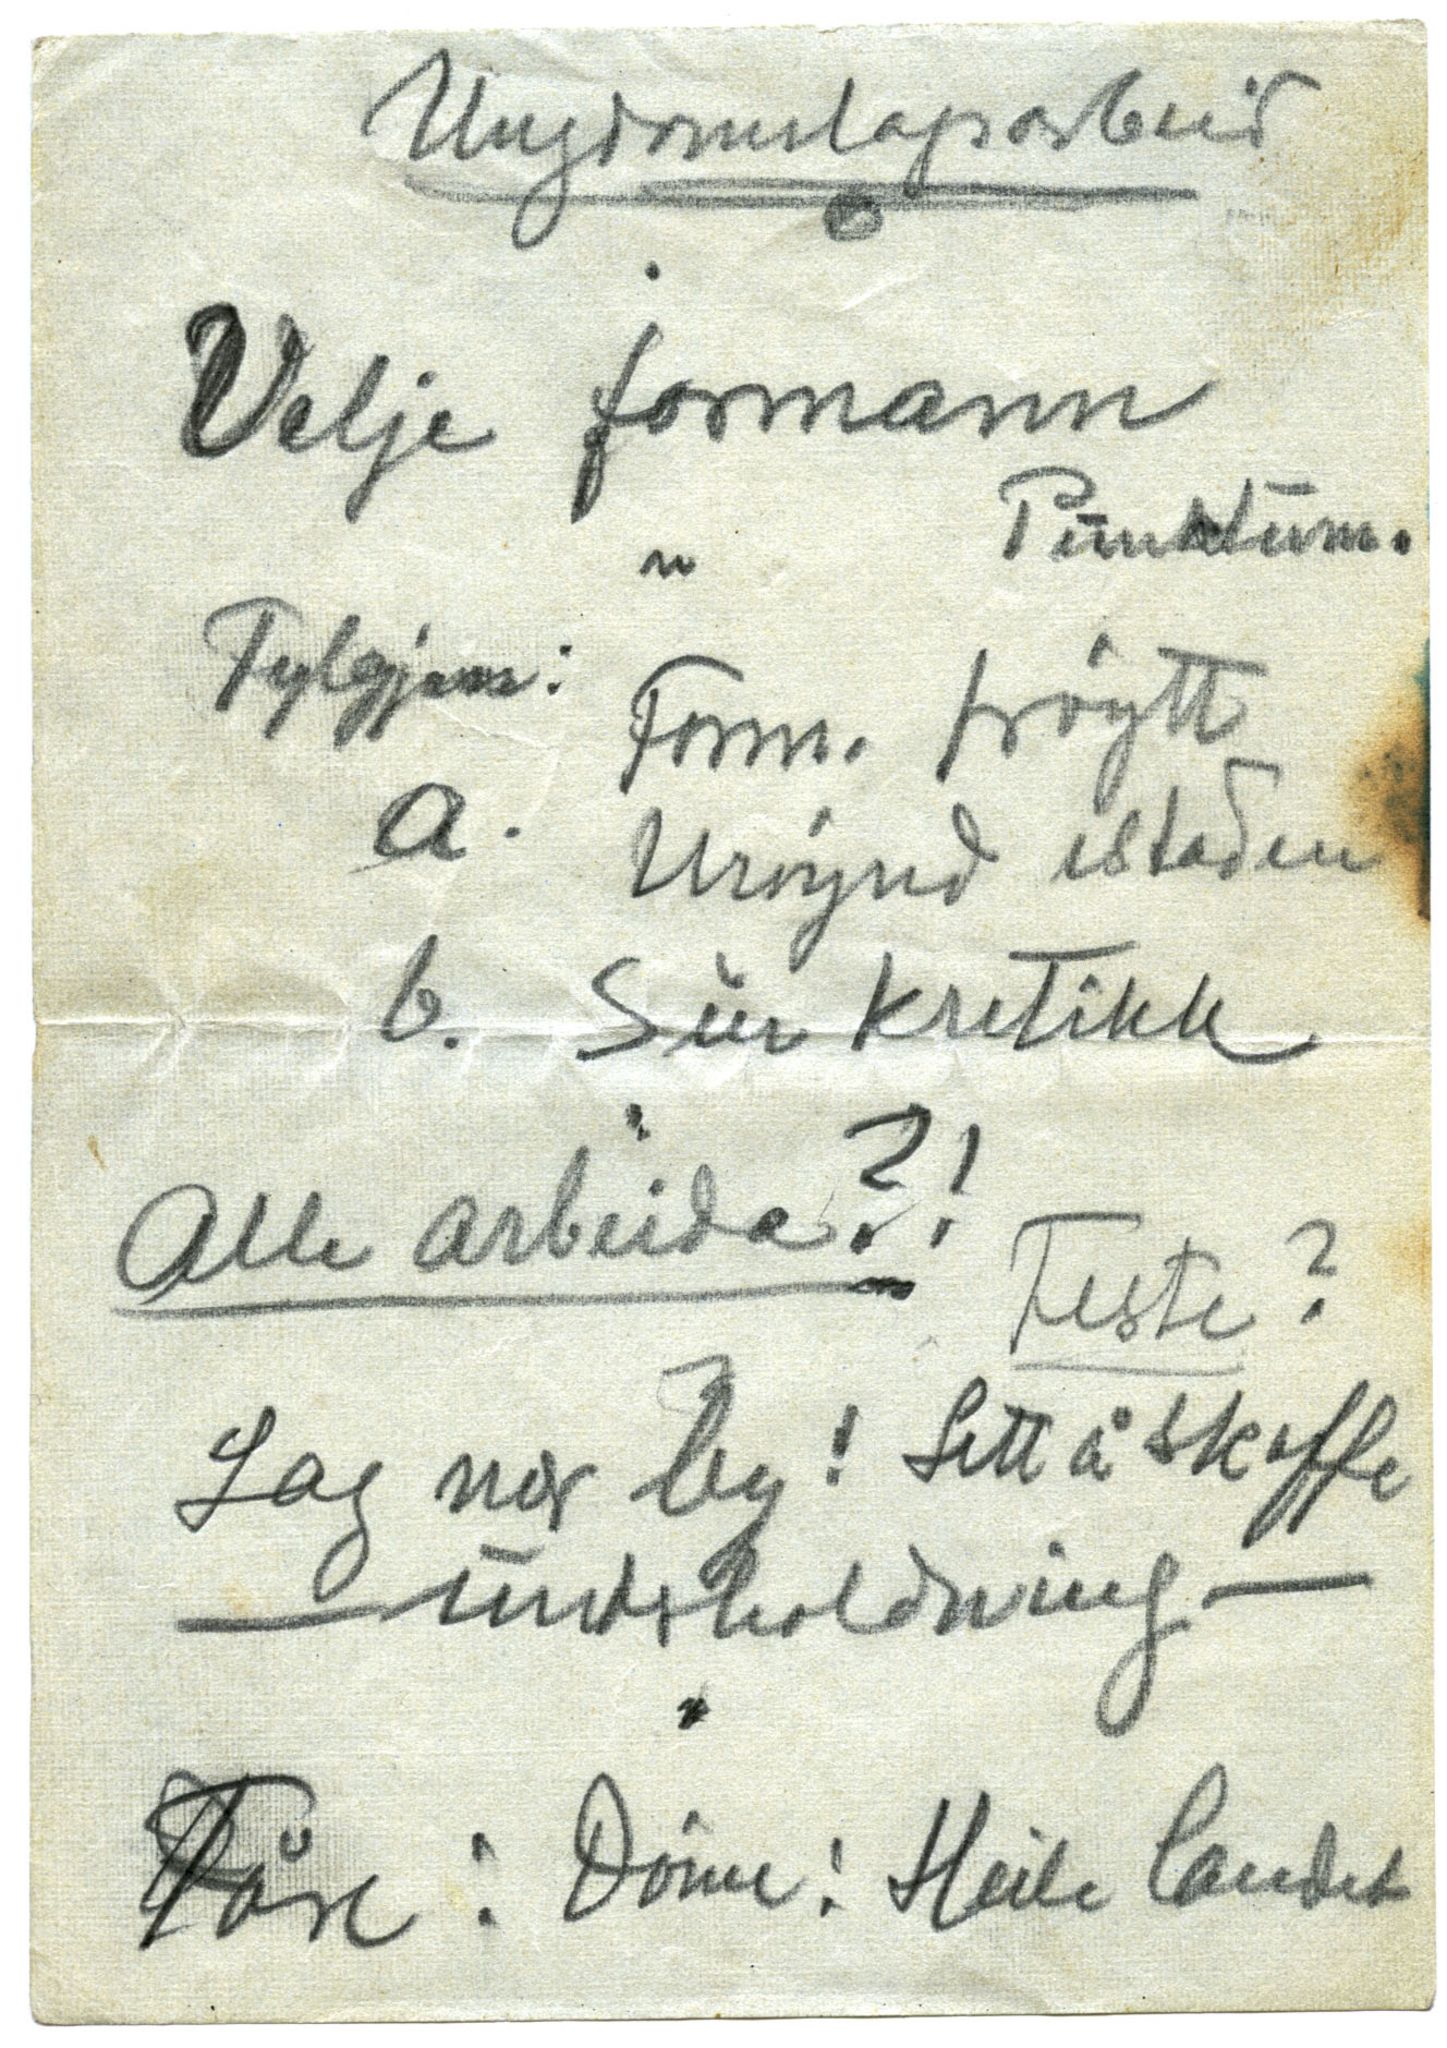 Ungdomslagsarbeid
Velje formann
Punktum.
"
Fylgjene:
Form. trøytt
a. Urøynd istaden
b. Sur kritikk
Alle arbeida?!
Feste?
Lag nær by! Lett å skaffe
— underholdning —
"
: Døme: Heile landet